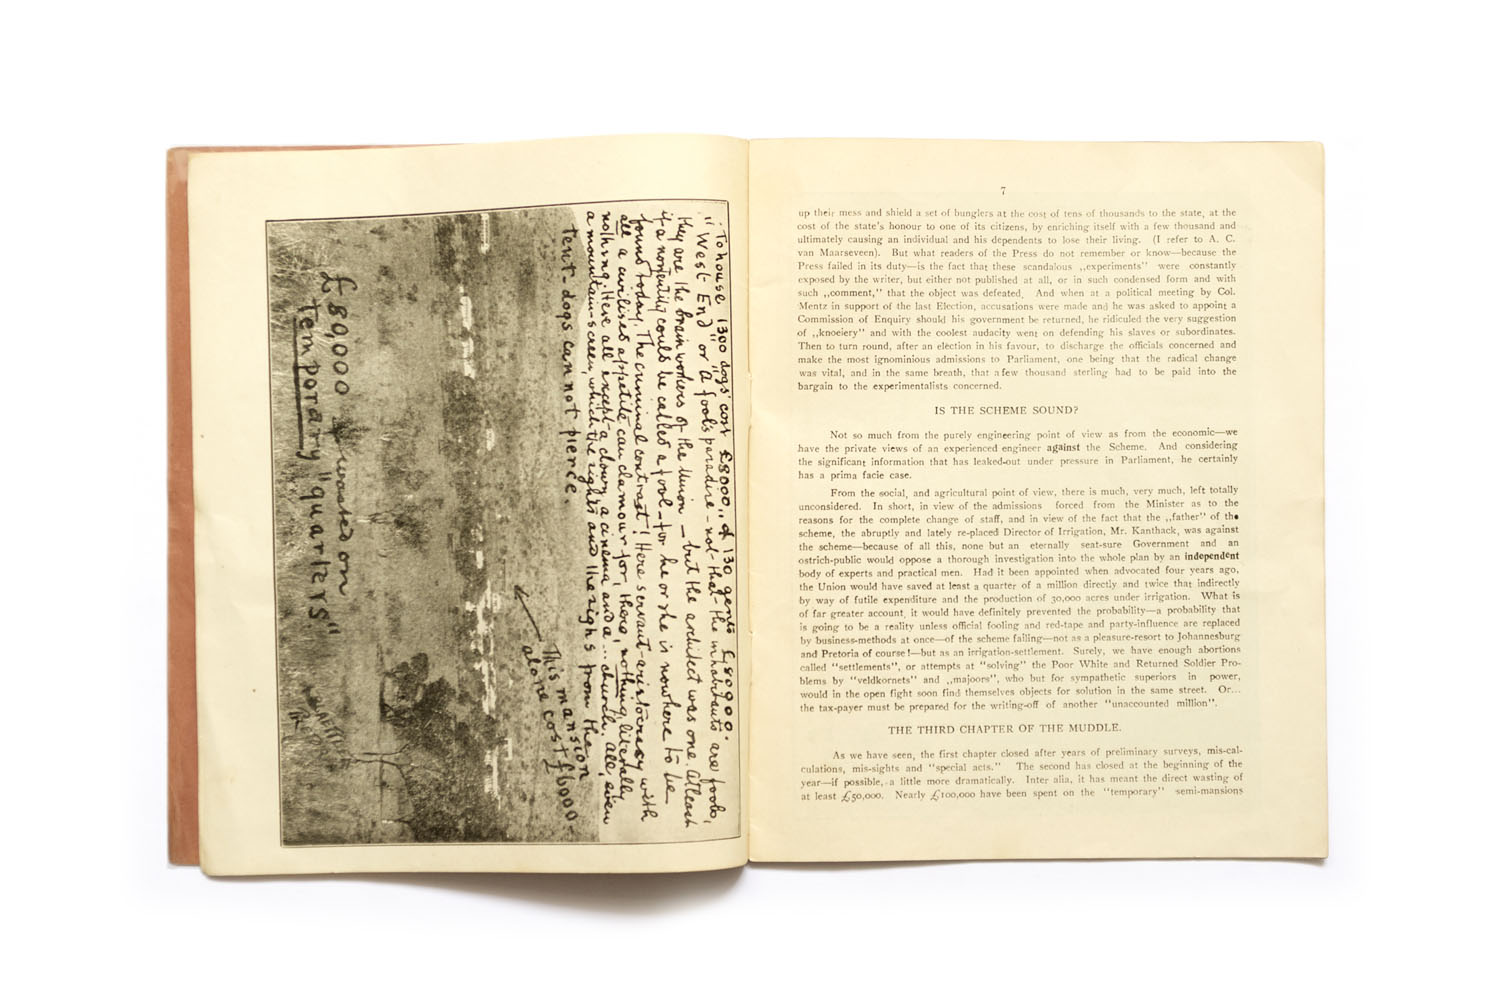 "To house 1300 "dogs" cost £8000,, of 130 gents £80900.
"West-End" or A fools paradise - not-that-the inhabitants are fools,
they are the brain workers of the Union - but the architect was one. At least
if a nonentity could be called a fool - for he or she is nowhere to be
found today. The criminal contrast! Here servant-aristocracy with
all a civilised appetite can clamour for, there, nothing, literally
nothing. Here all except a clown, a cinema and a... church. All, even
a mountain-screen, which the sights and the sighs from the
tent-dogs cannot pierce.
This mansion
alone cost £6000-
£80,000 wasted on
"Temporary "quarters"
7
up their mess and shield a set of bunglers at the cost of tens of thousands to the state, at the
cost of the state's honour to one of its citizens, by enriching itself with a few thousand and
ultimately causing an individual and his dependents to lose their living. (I refer to A. C.
van Maarseveen). But what readers of the Press do not remember or know—because the
Press failed in its duty—is the fact that these scandalous ,,experiments" were constantly
exposed by the writer, but either not published at all, or in such condensed form and with
such ,,comment," that the object was defeated. And when at a political meeting by Col.
Mentz in support of the last Election, accusations were made and he was asked to appoint a
Commission of Enquiry should his government be returned, he ridiculed the very suggestion
of ,,knoeiery" and with the coolest audacity went on defending his slaves or subordinates.
Then to turn round, after an election in his favour, to discharge the officials concerned and
make the most ignominious admissions to Parliament, one being that the radical change
was vital, and in the same breath, that a few thousand sterling had to be paid into the
bargain to the experimentalists concerned.
IS THE SCHEME SOUND?
Not so much from the purely engineering point of view as from the economic—we
have the private views of an experienced engineer against the Scheme. And considering
the significant information that has leaked-out under pressure in Parliament, he certainly
has a prima facie case.
From the social, and agricultural point of view, there is much, very much, left totally
unconsidered. In short, in view of the admissions forced from the Minister as to the
reasons for the complete change of staff, and in view of the fact that the ,,father" of the
scheme, the abruptly and lately re-placed Director of Irrigation, Mr. Kanthack, was against
the scheme—because of all this, none but an eternally seat-sure Government and an
ostrich-public would oppose a thorough investigation into the whole plan by an independent
body of experts and practical men. Had it been appointed when advocated four years ago,
the Union would have saved at least a quarter of a million directly and twice that indirectly
by way of futile expenditure and the production of 30,000 acres under irrigation. What is
of far greater account, it would have definitely prevented the probability—a probability that
is going to be a reality unless official fooling and red-tape and party-influence are replaced
by business-methods at once—of the scheme failing—not as a pleasure-resort to Johannesburg
and Pretoria of course!—but as an irrigation-settlement. Surely, we have enough abortions
called "settlements", or attempts at "solving" the Poor White and Returned Soldier Pro-
blems by "veldkornets" and ,,majoors", who but for sympathetic superiors in power,
would in the open fight soon find themselves objects for solution in the same street. Or...
the tax-payer must be prepared for the writing-off of another "unaccounted million".
THE THIRD CHAPTER OF THE MUDDLE.
As we have seen, the first chapter closed after years of preliminary surveys, mis-cal-
culations, mis-sights and "special acts." The second has closed at the beginning of the
year—if possible, a little more dramatically. Inter alia, it has meant the direct wasting of
at least £50,000. Nearly £100,000 have been spent on the "temporary" semi-mansions